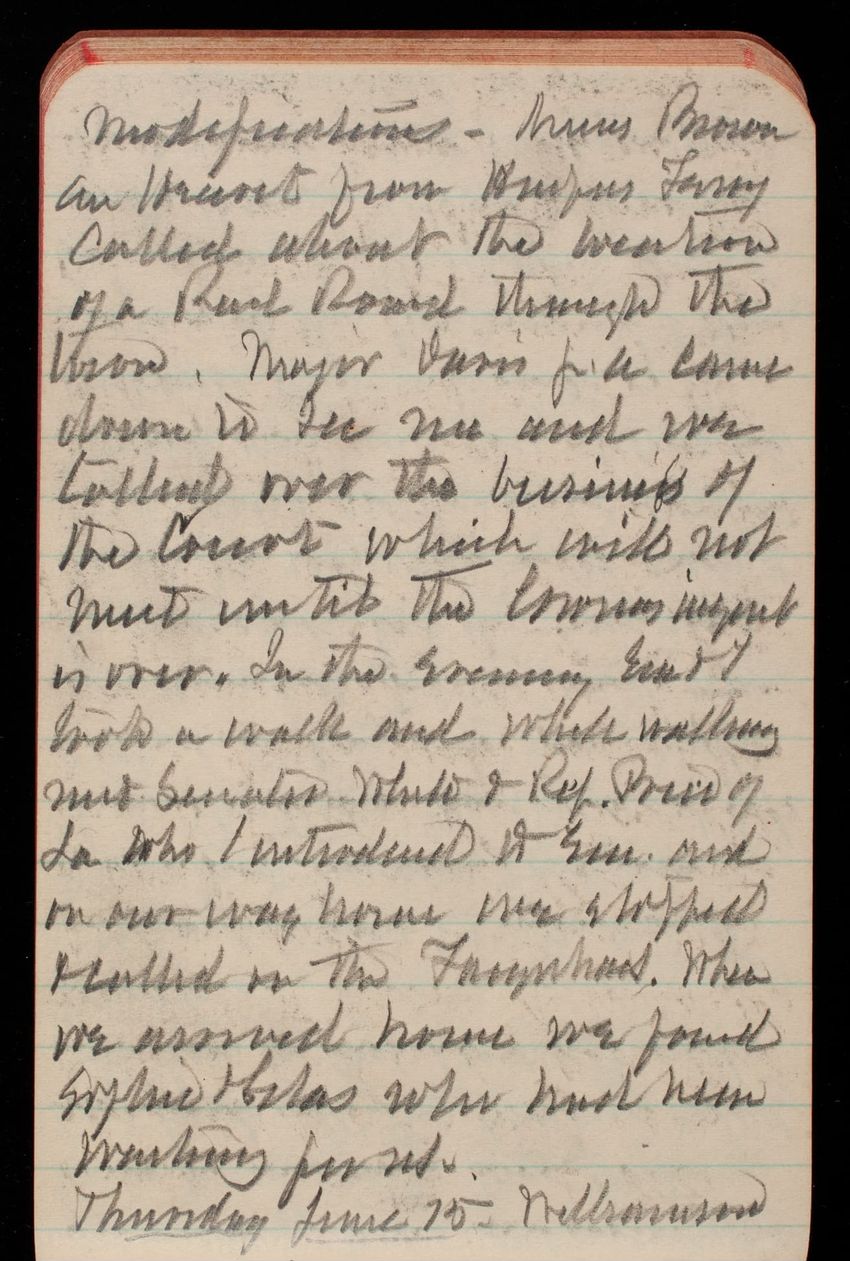 modifications - Brown
an from Harpers Ferry
Called about the location
of a Rail Road through the
town. Major Davis came
down to see me and we
talked over the business of
the Court which will not
meet until the Coroners inquest
is over. In the evening Em & I
took a walk and while walking
met Senator White & Rep. Price of
La who I introduced to Em. and
on our way home we stopped
& called on the Farquhars. When
we arrived home we found
Sophie & Silas who had been
waiting for us.
Thursday June 15 - Williamson